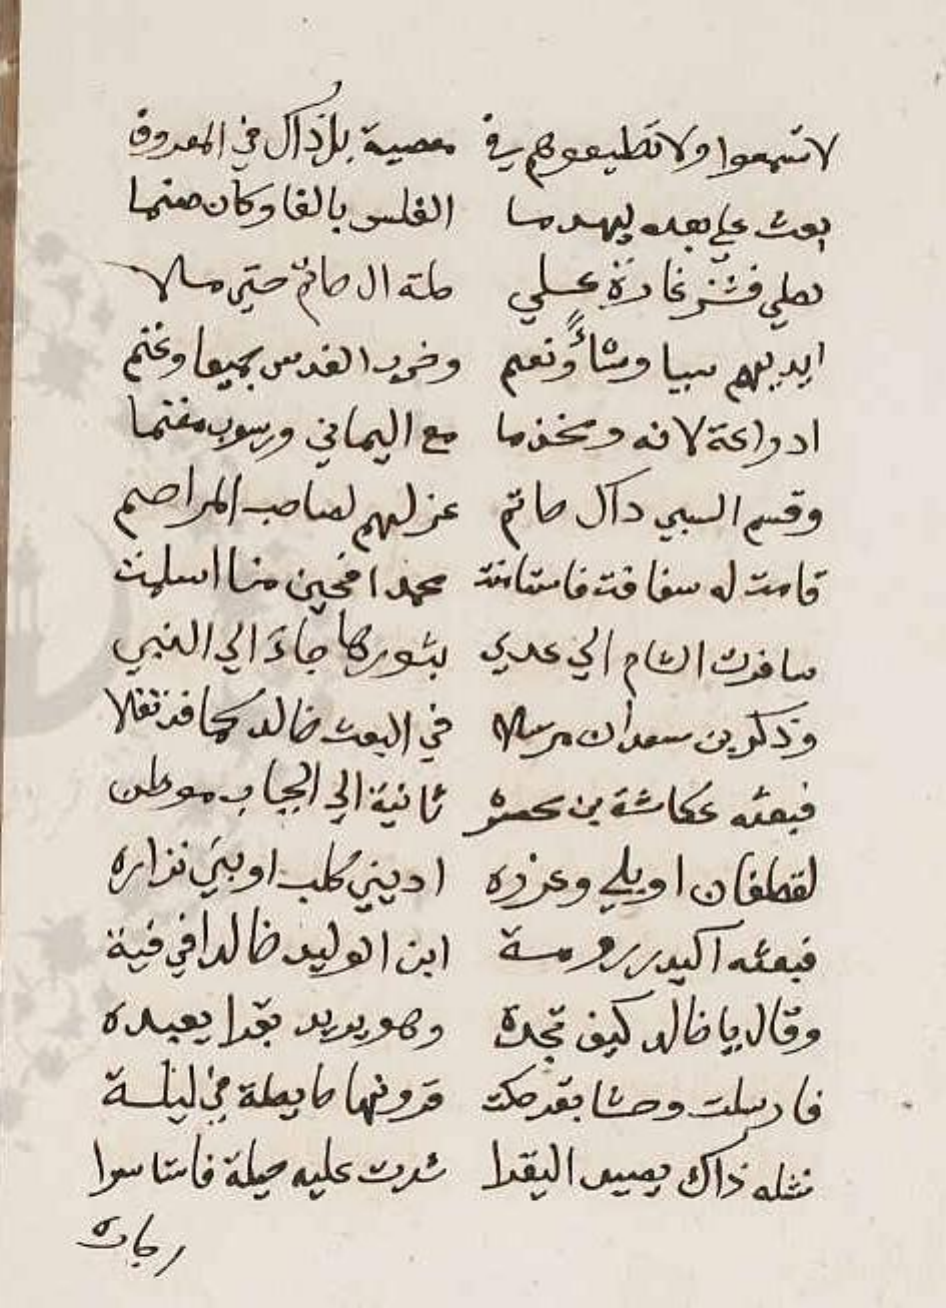 لا تسمعوا ولا تطيعوهم في معصية بل ذاك في المعروف
بعث علي بعده ليهدما الفلس بالفا وكان صنما
لطي فشن غارة علي حلة ال حاتم حتي ملا
ايديهم سبيا وشاء ونعم وخرب الفلس جميعا وغنم
ادراعة ثلاثه ومخذما مع اليماني ورسوب مغنما
وقسم السبي وآل حاتم عزلهم لصاحب المراحم
قامت له سفانة فاستامنت محمدا فحين منا اسلمت
سافرت الشام الي عدي بشورها جاء الي النبي
وذكر بن سعد ان مرسلا في البعث خالد كما قد نقلا
فبعثه عكاشة بن محصن ثانية الي الجباب موطن
لغطفان او بلي وعذره او بني كلب او بني فزاره
فبعثه اكيدر دومة ابن الوليد خالدا في فية
وقال يا خالد كيف تجده وهو يريد بقرا يصيده
فارسلت وحشا بقر حكت قرونها حايطة في ليلة
نشله ذاك يصيد البقرا شدت عليه خيلة فاستاسرا